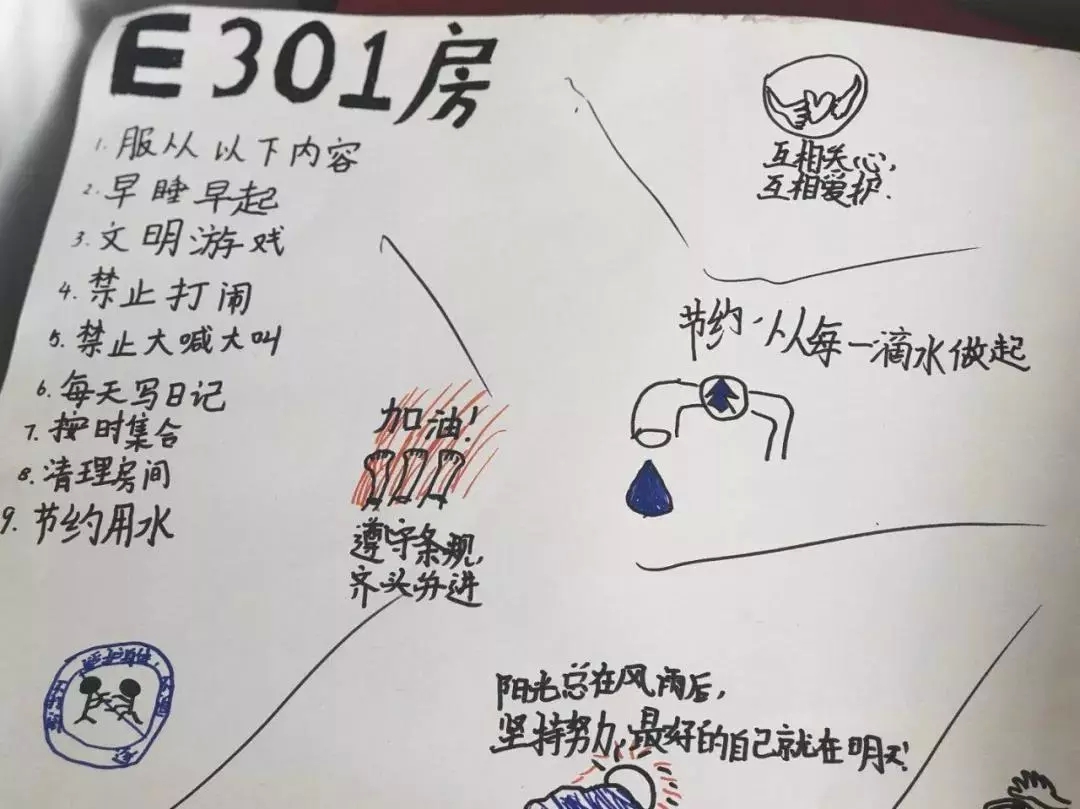 E301房
1. 服从以下内容
2. 早睡早起
3. 文明游戏
4. 禁止打闹
5. 禁止大喊大叫
6. 每天写日记
7. 按时集合
8. 清理房间
9. 节约用水
互相关心,
互相爱护.
节约.从每一滴水做起
加油!
遵守条规,
齐头并进
阳光总在风雨后,
坚持努力,最好的自己就在明天!